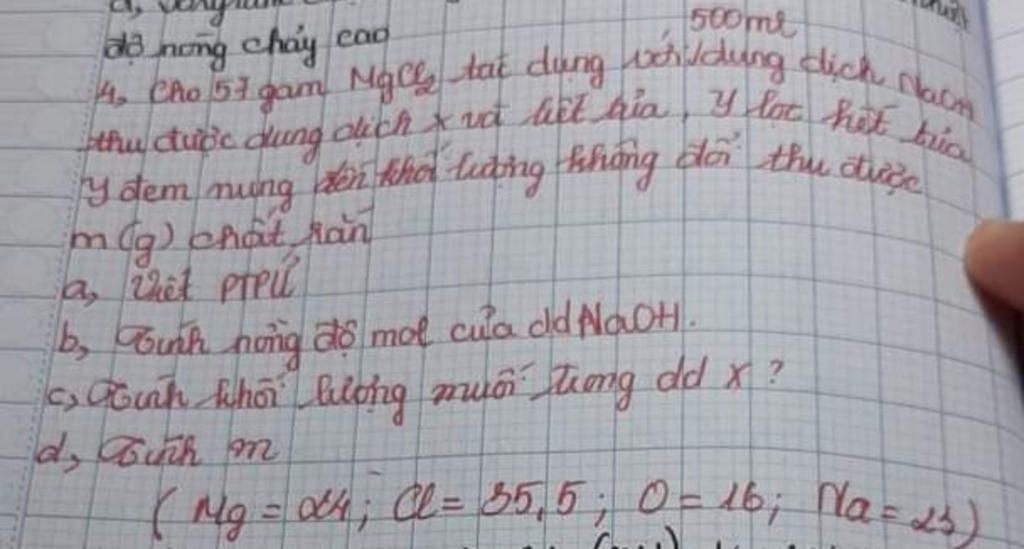 độ nóng chảy cao
500ml
4, Cho 57 gam MgCl2 tác dụng với dung dịch NaOH
thu được dung dịch X và kết tủa, Y lọc hết tủa
Y đem nung đến khối lượng không đổi thu được
m(g) chất rắn
a, Viết PTPƯ
b, Tính nồng độ mol của dd NaOH.
c, Tính khối lượng muối trong dd X?
d, Tính m
(Mg = 24; Cl = 35,5; O = 16; Na = 23)